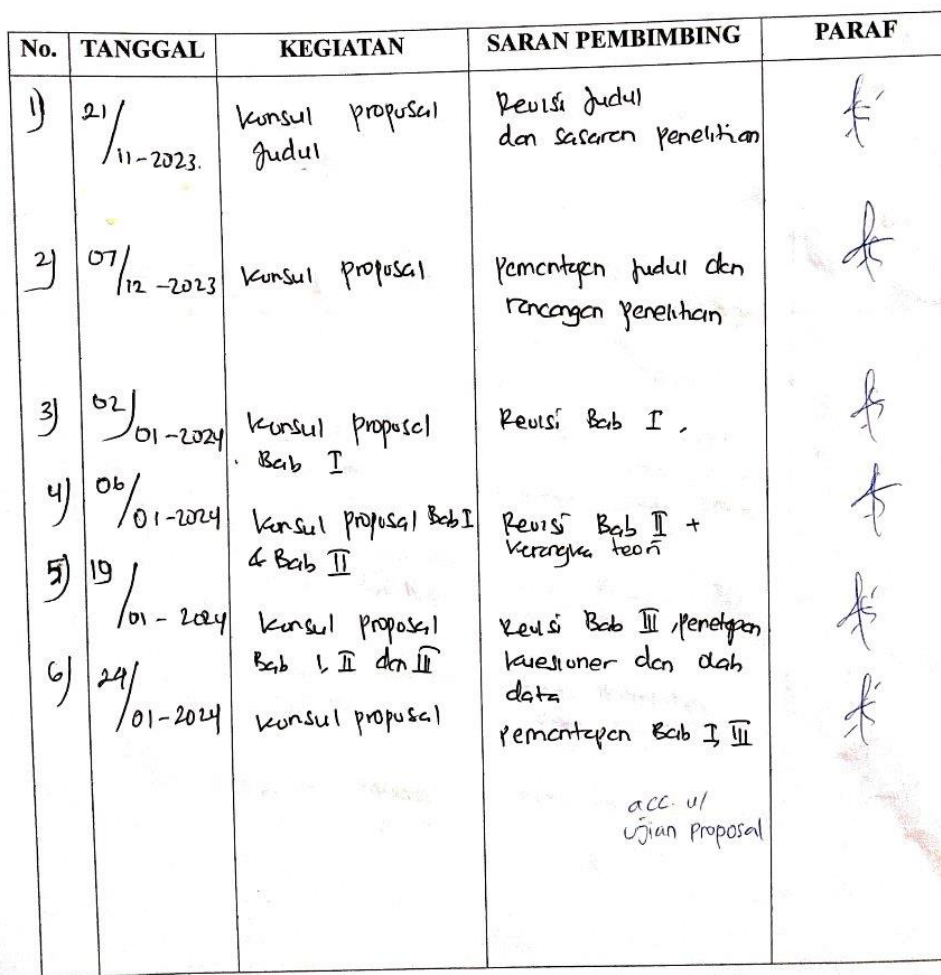 No. TANGGAL KEGIATAN SARAN PEMBIMBING PARAF
1) 21/11-2023. Konsul proposal Revisi Judul
Judul dan sasaran penelitian
2) 07/12-2023 Konsul proposal Pemantapan Judul dan
rancangan penelitian
3) 02/01-2024 Konsul proposal Revisi Bab I.
Bab I
4) 06/01-2024 Konsul proposal Bab I Revisi Bab II +
& Bab II kerangka teori
5) 19/01-2024 Konsul proposal Revisi Bab III, penetapan
Bab I, II dan III kuesioner dan olah
data
6) 24/01-2024 Konsul proposal pemantapan Bab I, III
acc. u/
ujian proposal